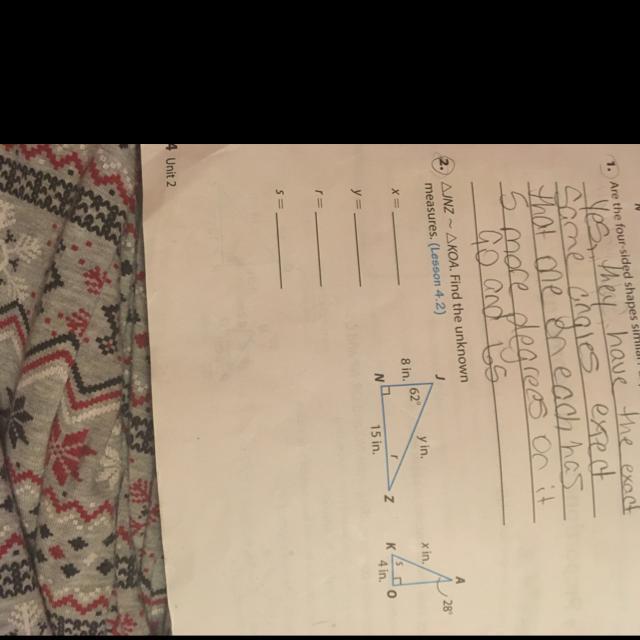 1. Are the four-sided shapes similar
Yes, they have the exact
same angles exect
that one on each has
5 more degrees on it
60 and 65
2. △JNZ ~ △KOA. Find the unknown
measures. (Lesson 4.2)
x =
y =
r =
s =
J
62°
8 in.
y in.
N
r
15 in.
Z
A
28°
x in.
K
s
4 in.
O
4 Unit 2